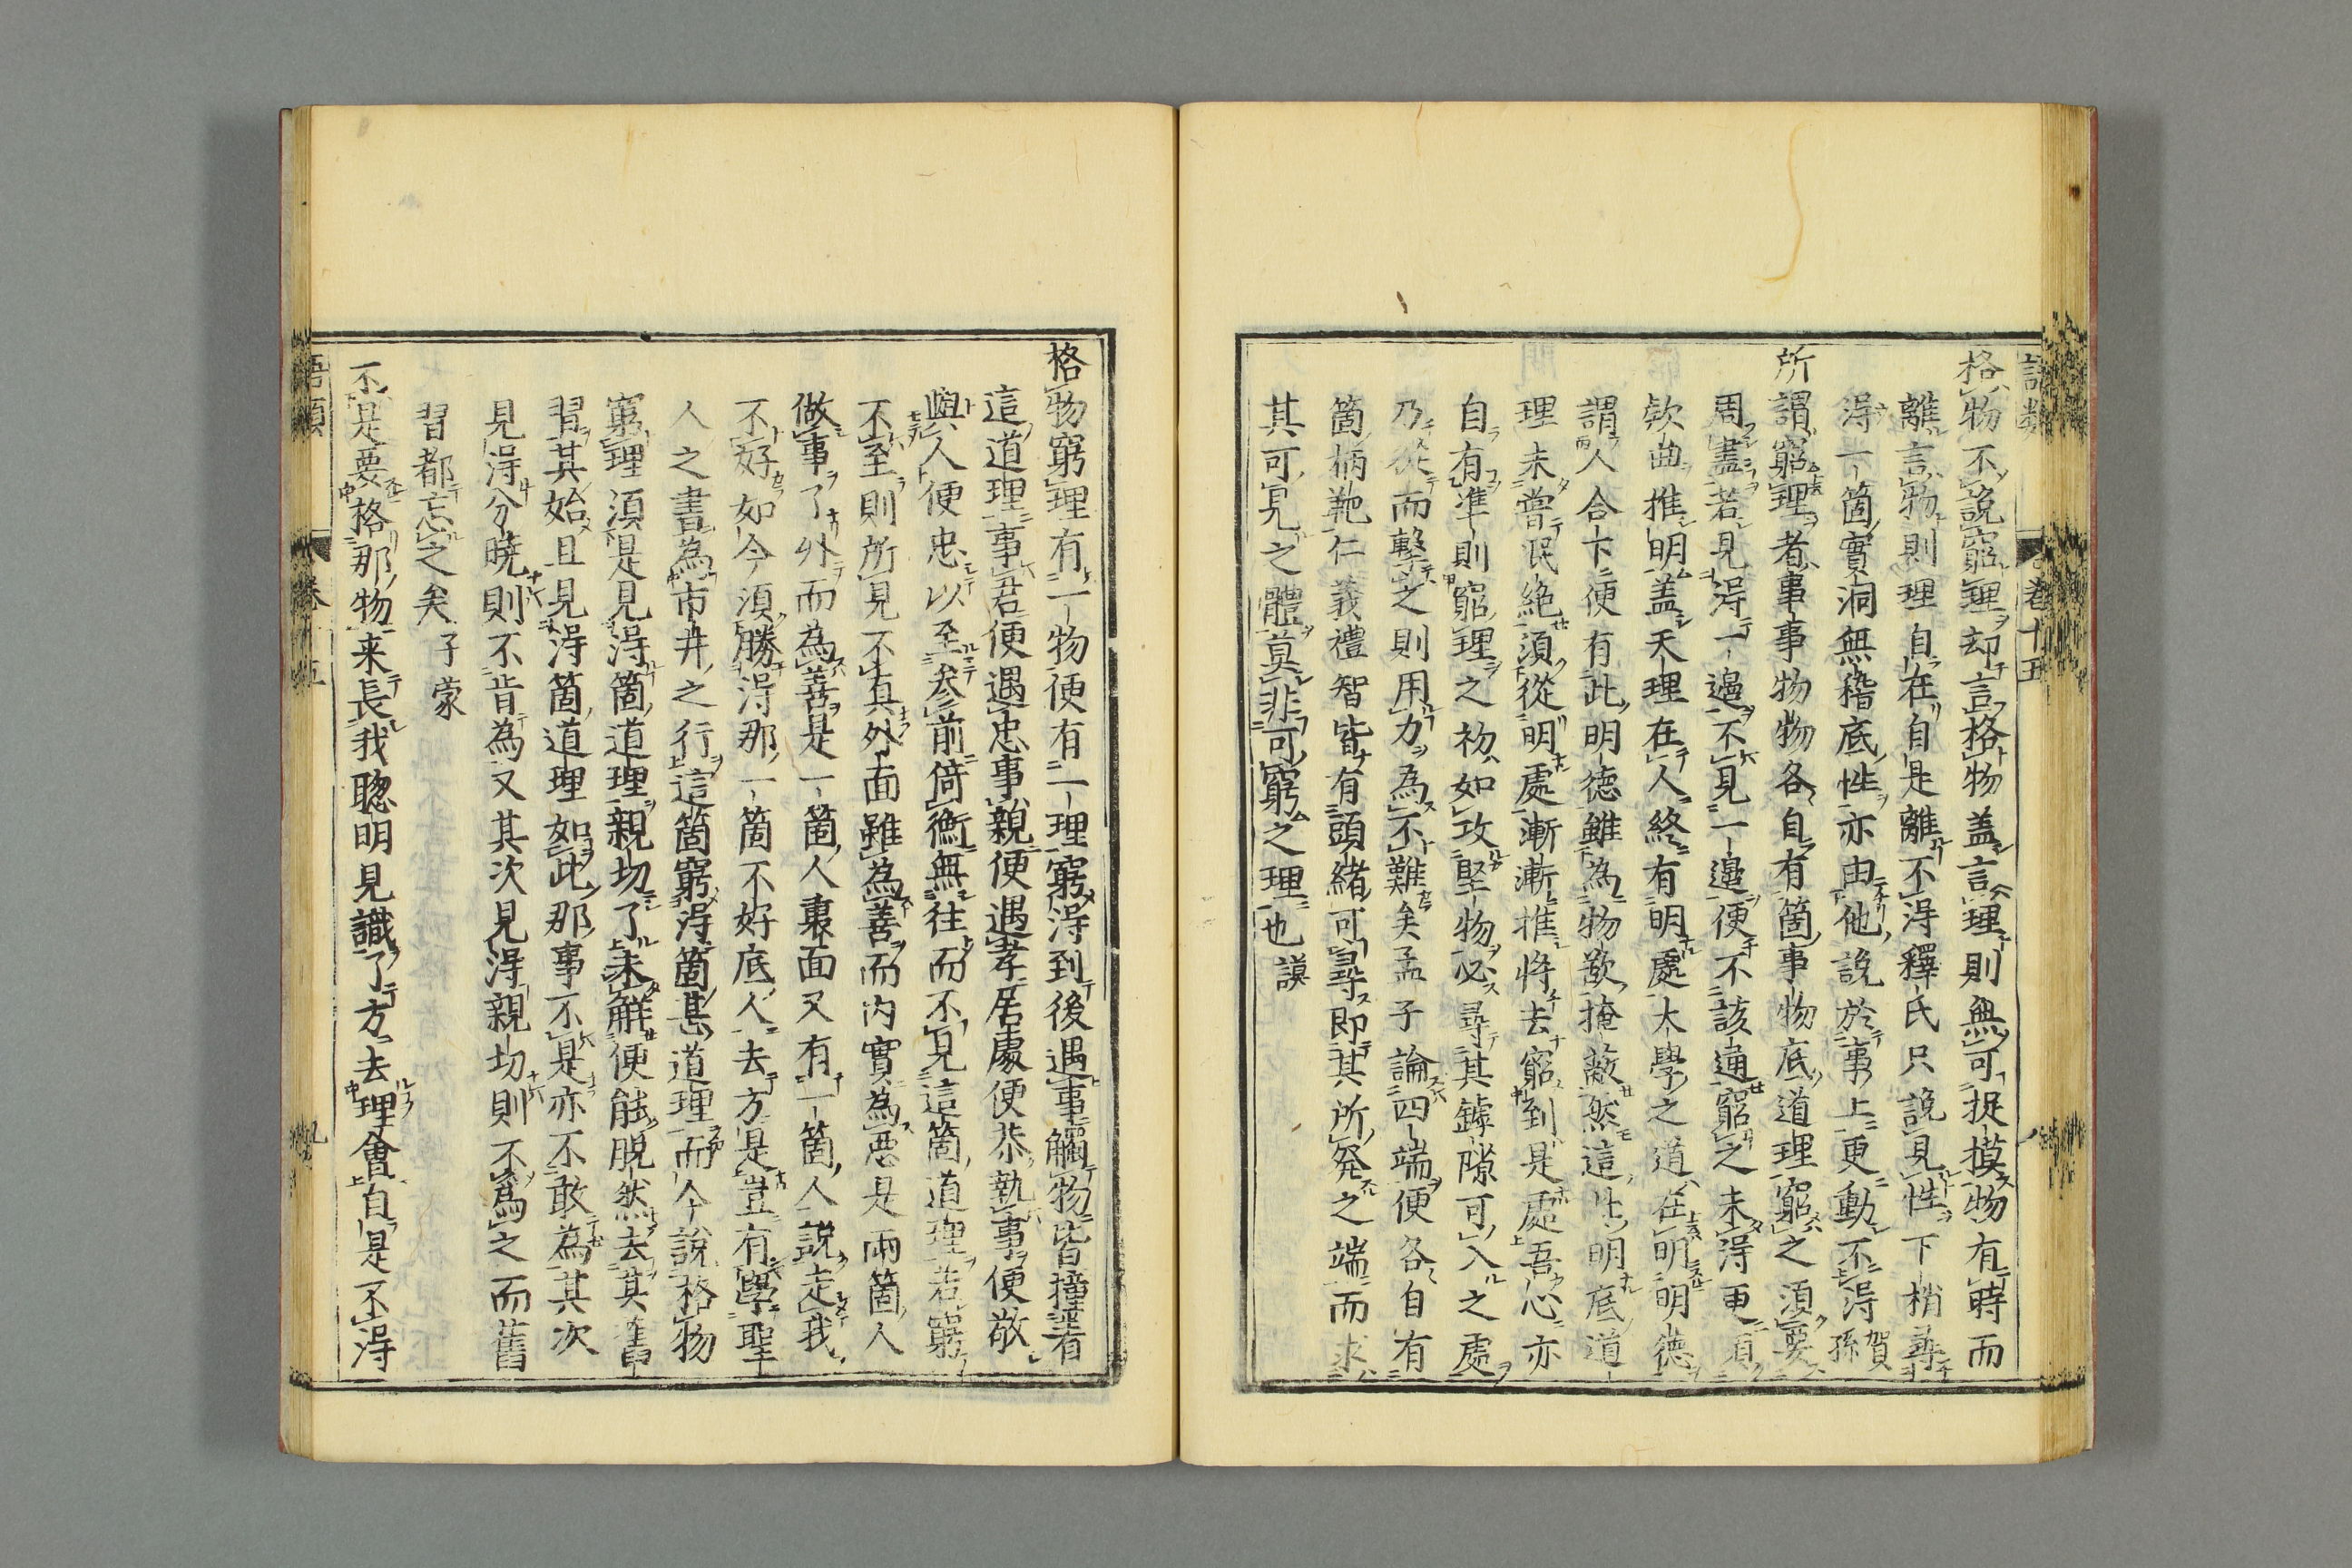 語類 卷十五
格物不說窮理却言格物盖言理則無可捉摸物有時而
離言物則理自在自是離不得釋氏只說見性下梢尋
得一箇空洞無稽底性亦由他說於事上更動不得賀孫
所謂窮理者事事物物各自有箇事物底道理窮之須要
周盡若見得一邉不見一邉便不該通窮之未得更須
欵曲推明盖天理在人終有明處大學之道在明明德
謂人合下便有此明德雖為物欲掩蔽然這些明底道
理未嘗泯絶須從明處漸漸推将去窮到是處吾心亦
自有凖則窮理之初如攻堅物必尋其罅隙可入之處
乃從而擊之則用力為不難矣孟子論四端便各自有
箇柄靶仁義禮智皆有頭緒可尋即其所發之端而求
其可見之體莫非可窮之理也謨
格物窮理有一物便有一理窮得到後遇事觸物皆撞着
這道理事君便遇忠事親便遇孝居處便恭執事便敬
與人便忠以至參前倚衡無往而不見這箇道理若窮
不至則所見不真外面雖為善而内實為惡是兩箇人
做事了外而為善是一箇人裏面又有一箇人說走我
不好如今須勝得那一箇不好底人去方是豈有學聖
人之書為市井之行這箇窮得箇甚道理而今說格物
窮理須是見得箇道理親切了未解便能脱然去其舊
習其始且見得箇道理如此那事不是亦不敢為其次
見得分曉則不肯為又其次見得親切則不為之而舊
習都忘之矣子蒙
不是要格那物来長我聰明見識了方去理會自是不得
語類 卷十五 九